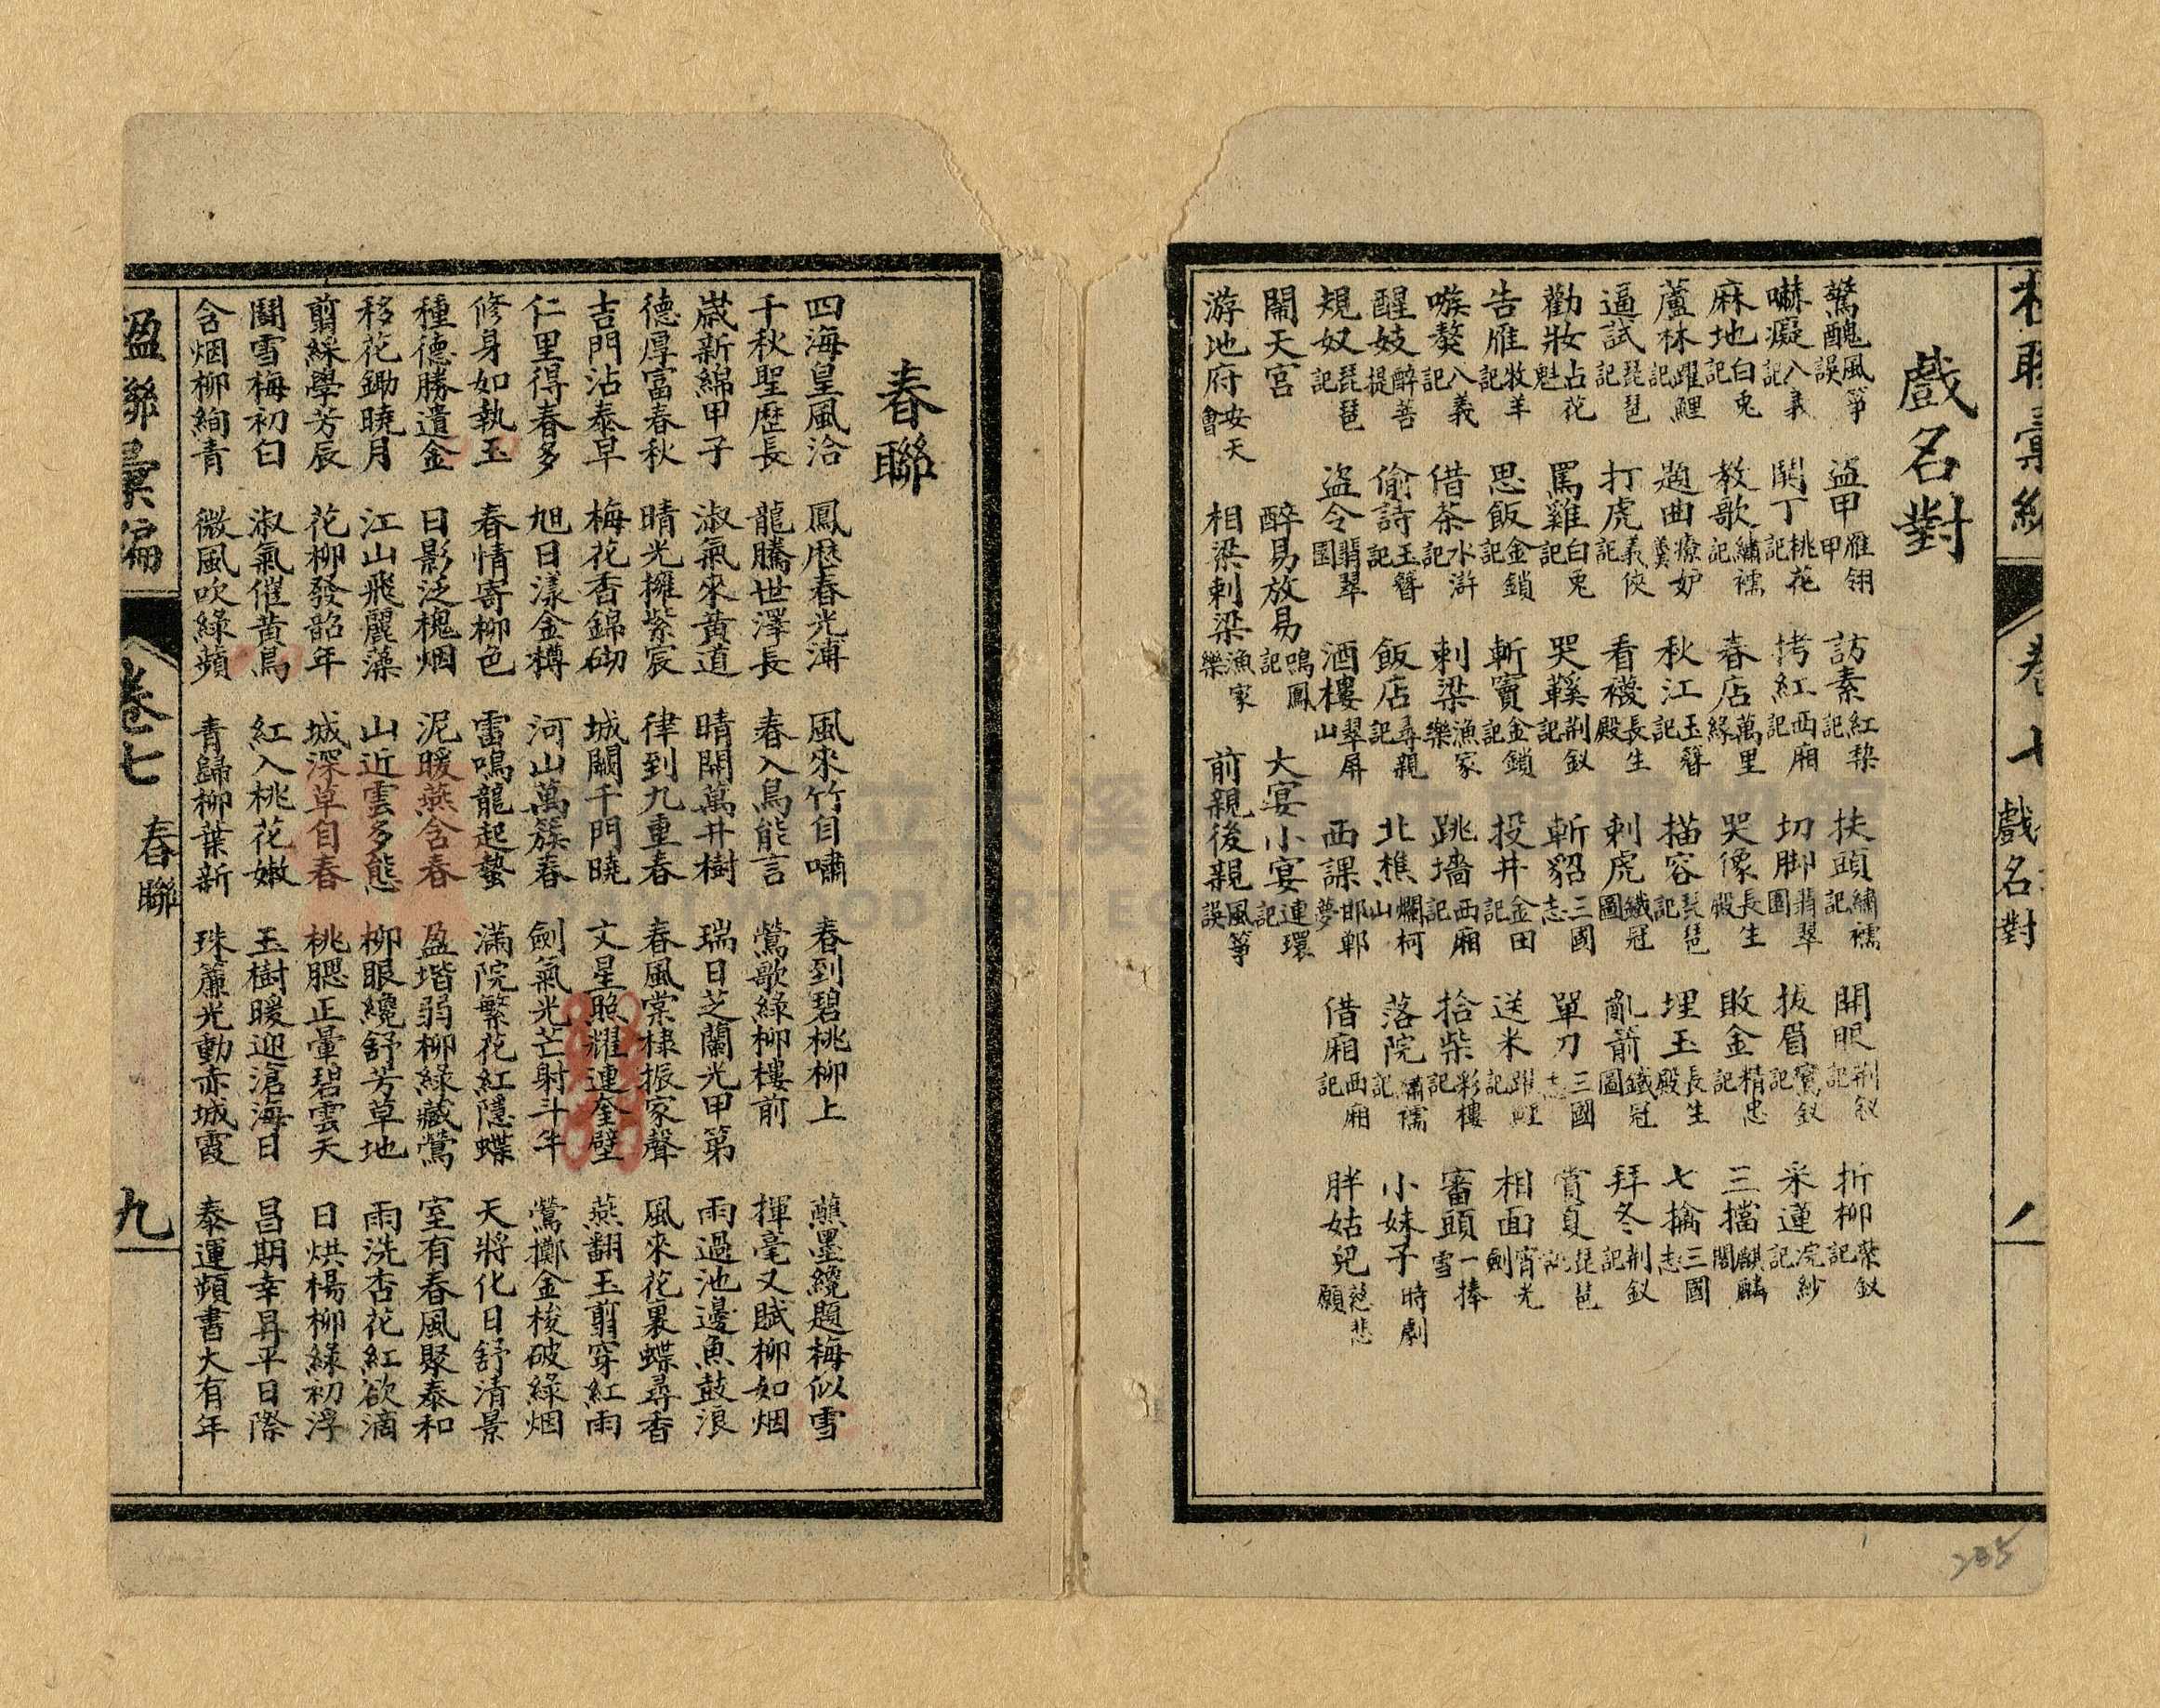 戲名對
驚醜風箏誤 盜甲雁翎甲 訪素紅梨記 扶頭繡襦記 開眼荆釵記 折柳紫釵記
嚇癡八義記 鬧丁桃花記 拷紅西廂記 切脚翡翠園 拔眉鸞釵記 采蓮浣紗記
麻地白兎記 教歌繡襦記 春店萬里緣 哭像長生殿 敗金精忠記 三擋麒麟閣
蘆林躍鯉記 題曲療妒羹 秋江玉簪記 描容琵琶記 埋玉長生殿 七擒三國志
逼試琵琶記 打虎義俠記 看襪長生殿 刺虎鐵冠圖 亂箭鐵冠圖 拜冬荆釵記
勸妝占花魁 罵雞白兎記 哭鞋荆釵記 斬貂三國志 單刀三國志 賞夏琵琶記
告雁牧羊記 思飯金鎖記 斬竇金鎖記 投井金田記 送米躍鯉記 相面宵光劍
嗾獒八義記 借茶水滸記 刺梁漁家樂 跳墻西廂記 拾柴彩樓記 審頭一捧雪
醒妓醉菩提 偷詩玉簪記 飯店尋親記 北樵爛柯山 落院繡襦記 小妹子時劇
規奴琵琶記 盜令翡翠園 酒樓翠屏山 西諜邯鄲夢 借廂西廂記 胖姑兒慈悲願
鬧天宮 醉易放易鳴鳳記 大宴小宴連環記
游地府安天會 相梁刺梁漁家樂 前親後親風箏誤
卷七 戲名對
春聯
四海皇風洽 鳳歷春光溥 風來竹自嘯 春到碧桃柳上 蘸墨纔題梅似雪
千秋聖歷長 龍騰世澤長 春入鳥能言 鶯歌綠柳樓前 揮毫又賦柳如烟
歲新綿甲子 淑氣來黃道 晴開萬井樹 瑞日芝蘭光甲第 雨過池邊魚鼓浪
德厚富春秋 晴光擁紫宸 律到九重春 春風棠棣振家聲 風來花裏蝶尋香
吉門沾泰早 梅花香錦砌 城闕千門曉 文星照耀連奎壁 燕翻玉剪穿紅雨
仁里得春多 旭日漾金樽 河山萬簇春 劍氣光芒射斗牛 鶯擲金梭破綠烟
修身如執玉 春情寄柳色 雷鳴龍起蟄 滿院繁花紅隱蝶 天將化日舒清景
種德勝遺金 日影泛槐烟 泥暖燕含春 盈堦弱柳綠藏鶯 室有春風聚泰和
移花鋤曉月 江山飛麗藻 山近雲多態 柳眼纔舒芳草地 雨洗杏花紅欲滴
剪綵學芳辰 花柳發韶年 城深草自春 桃腮正暈碧雲天 日烘楊柳綠初浮
鬭雪梅初白 淑氣催黃鳥 紅入桃花嫩 玉樹暖迎滄海日 昌期幸昇平日際
含烟柳絢青 微風吹綠蘋 青歸柳葉新 珠簾光動赤城霞 泰運頻書大有年
楹聯彙編 卷七 春聯 九
235